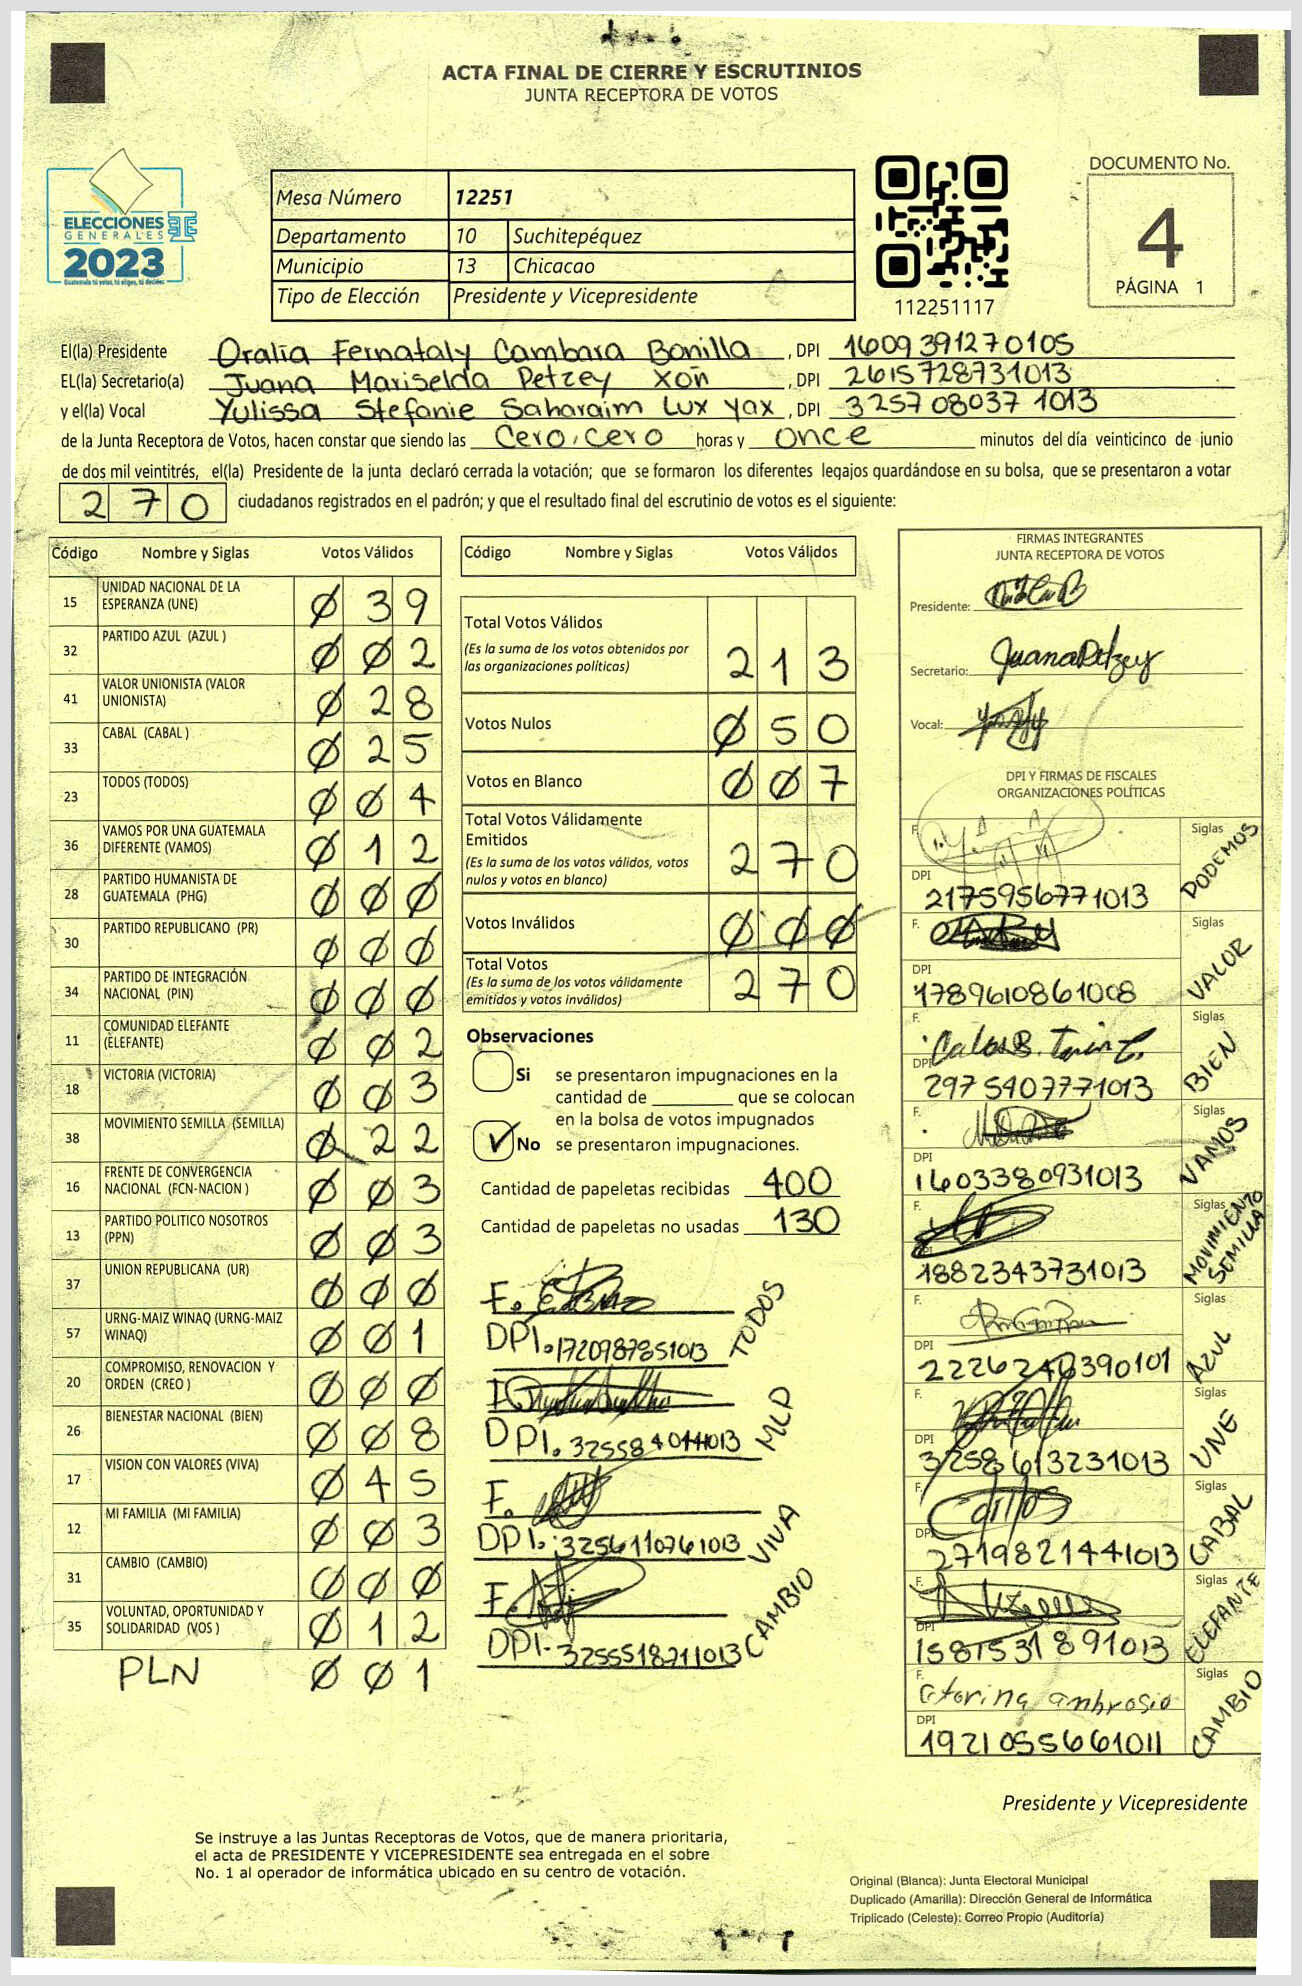 ACTA FINAL DE CIERRE Y ESCRUTINIOS
JUNTA RECEPTORA DE VOTOS
ELECCIONES
GENERALES
2023
Guatemala tú votas, tú eliges, tú decides
Mesa Número 12251
Departamento 10 Suchitepéquez
Municipio 13 Chicacao
Tipo de Elección Presidente y Vicepresidente
112251117
DOCUMENTO No.
4
PÁGINA 1
El(la) Presidente Oralia Fernataly Cambara Bonilla, DPI 1609391270105
EL(la) Secretario(a) Juana Mariselda Petzey Xoñ, DPI 2615728731013
y el(la) Vocal Yulissa Stefanie Saharaim Lux yax, DPI 3257080371013
de la Junta Receptora de Votos, hacen constar que siendo las Cero, cero horas y once minutos del día veinticinco de junio
de dos mil veintitrés, el(la) Presidente de la junta declaró cerrada la votación; que se formaron los diferentes legajos quardándose en su bolsa, que se presentaron a votar
270 ciudadanos registrados en el padrón; y que el resultado final del escrutinio de votos es el siguiente:
Código Nombre y Siglas Votos Válidos
15 UNIDAD NACIONAL DE LA ESPERANZA (UNE) Ø39
32 PARTIDO AZUL (AZUL ) ØØ2
41 VALOR UNIONISTA (VALOR UNIONISTA) Ø28
33 CABAL (CABAL ) Ø25
23 TODOS (TODOS) ØØ4
36 VAMOS POR UNA GUATEMALA DIFERENTE (VAMOS) Ø12
28 PARTIDO HUMANISTA DE GUATEMALA (PHG) ØØØ
30 PARTIDO REPUBLICANO (PR) ØØØ
34 PARTIDO DE INTEGRACIÓN NACIONAL (PIN) ØØØ
11 COMUNIDAD ELEFANTE (ELEFANTE) ØØ2
18 VICTORIA (VICTORIA) ØØ3
38 MOVIMIENTO SEMILLA (SEMILLA) Ø22
16 FRENTE DE CONVERGENCIA NACIONAL (FCN-NACION ) ØØ3
13 PARTIDO POLITICO NOSOTROS (PPN) ØØ3
37 UNION REPUBLICANA (UR) ØØØ
57 URNG-MAIZ WINAQ (URNG-MAIZ WINAQ) ØØ1
20 COMPROMISO, RENOVACION Y ORDEN (CREO ) ØØØ
26 BIENESTAR NACIONAL (BIEN) ØØ8
17 VISION CON VALORES (VIVA) Ø45
12 MI FAMILIA (MI FAMILIA) ØØ3
31 CAMBIO (CAMBIO) ØØØ
35 VOLUNTAD, OPORTUNIDAD Y SOLIDARIDAD (VOS ) Ø12
PLN ØØ1
Código Nombre y Siglas Votos Válidos
Total Votos Válidos
(Es la suma de los votos obtenidos por
las organizaciones políticas) 213
Votos Nulos Ø50
Votos en Blanco ØØ7
Total Votos Válidamente
Emitidos
(Es la suma de los votos válidos, votos
nulos y votos en blanco) 270
Votos Inválidos ØØØ
Total Votos
(Es la suma de los votos válidamente
emitidos y votos inválidos) 270
Observaciones
Si se presentaron impugnaciones en la
cantidad de ________ que se colocan
en la bolsa de votos impugnados
✓ No se presentaron impugnaciones.
Cantidad de papeletas recibidas 400
Cantidad de papeletas no usadas 130
F.
DPI. 1720987851013 TODOS
DPI. MLP
F.
DPI. 3256110761013 VIVA
F.
DPI- 3255518711013 CAMBIO
FIRMAS INTEGRANTES
JUNTA RECEPTORA DE VOTOS
Presidente:
Secretario: Juana Petzey
Vocal:
DPI Y FIRMAS DE FISCALES
ORGANIZACIONES POLÍTICAS
F. Siglas PODEMOS
DPI 2175956771013
F. Siglas VALOR
DPI 1789610861008
F. Siglas BIEN
DPI 2975407771013
F. Siglas VAMOS
DPI 1603380931013
F. Siglas MOVIMIENTO SEMILLA
DPI 1882343731013
F. Siglas AZUL
DPI 2226240390101
F. Siglas UNE
DPI 3258613231013
F. Siglas CABAL
DPI 2719821441013
F. Siglas ELEFANTE
DPI 1581531891013
F. ambrosio Siglas CAMBIO
DPI 1921055661011
Presidente y Vicepresidente
Se instruye a las Juntas Receptoras de Votos, que de manera prioritaria,
el acta de PRESIDENTE Y VICEPRESIDENTE sea entregada en el sobre
No. 1 al operador de informática ubicado en su centro de votación.
Original (Blanca): Junta Electoral Municipal
Duplicado (Amarilla): Dirección General de Informática
Triplicado (Celeste): Correo Propio (Auditoría)